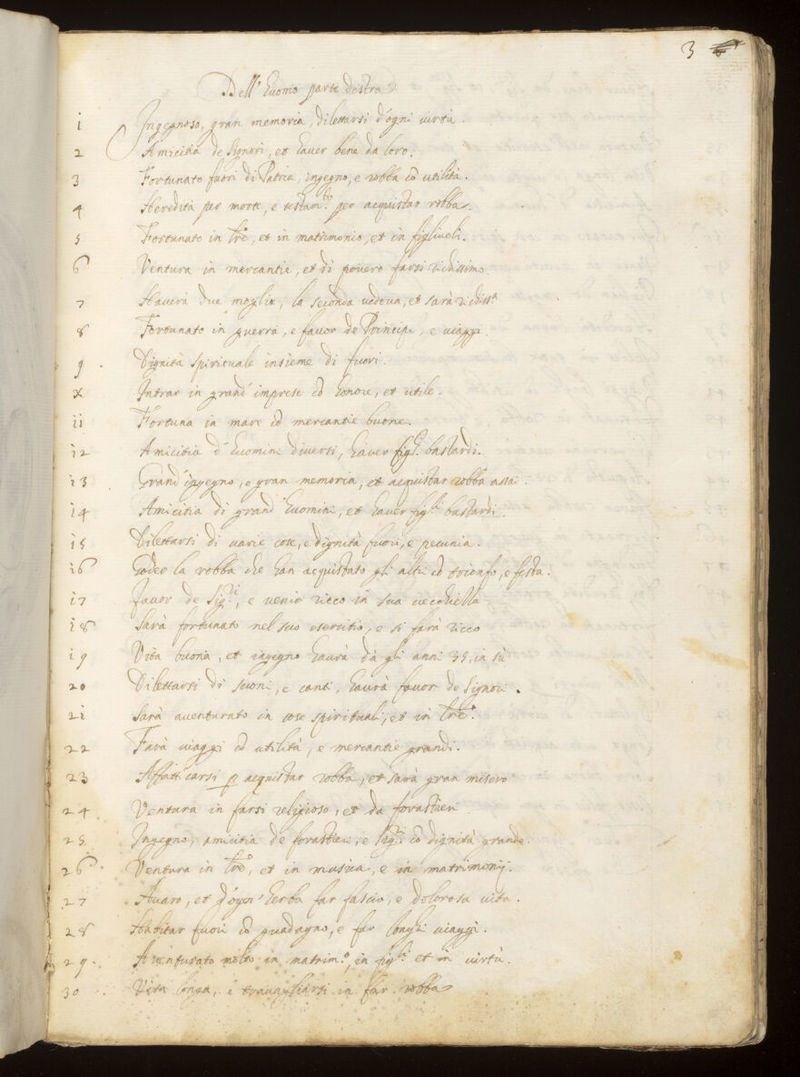 3
Dell' huomo parte destra
1 Ingegnoso, gran memoria, dilettarsi d'ogni virtù.
2 Amicitia de Signori, et haver bene da loro.
3 Fortunato fuori di Patria, ingegno, e robba cō utilità.
4 Heredità per morte, e testam.to per acquistar robba.
5 Fortunato in lre, et in matrimonio, et in figliuoli.
6 Ventura in mercantia, et di povero farsi richissimo
7 Haverà due moglie, la seconda vedova, et sarà richiss.a
8 Fortunato in guerra, e favor de Principi, e viaggi.
9 Dignità spirituale insieme di fuori.
X Intrar in grand' imprese cō honore, et utile.
11 Fortuna in mare cō mercantie buone.
12 Amicitia d' huomini diversi, haver figl.i bastardi.
13 Grand' ingegno, e gran memoria, et acquistar robba assai.
14 Amicitia di grand' huomini, et haver figl.i bastardi.
15 Dilettarsi di varie cose, e dignità fuori, e pecunia.
16 Goder la robba che han acquistato gli altri cō trionfo, e festa.
17 Favor de Sig.ri, e venir ricco in sua vecchiella
18 Sarà fortunato nel suo esercitio, e si farà ricco
19 Vita buona, et ingegno haurà da gli anni 35. in sù
20 Dilettarsi di suoni, e canti, haurà favor de Signori.
21 Sarà aventurato in cose spirituali, et in lre.
22 Farà viaggi cō utilità, e mercantie grandi.
23 Affatticarsi p acquistar robba, et sarà gran misero
24 Ventura in farsi religioso, et da forastieri
25 Ingegno, amicitia de forastieri, e Sig.ri cō dignità grande.
26 Ventura in lre, et in musica, e in matrimonij.
27 Avaro, et d'ogni herba far fascio, e dolorosa vita.
28 Habitar fuori cō guadagno, e far longhi viaggi.
29 Aventurato molto in matrim.o, in figl.i et in virtù.
30 Vita longa, e travagliarsi in far robba